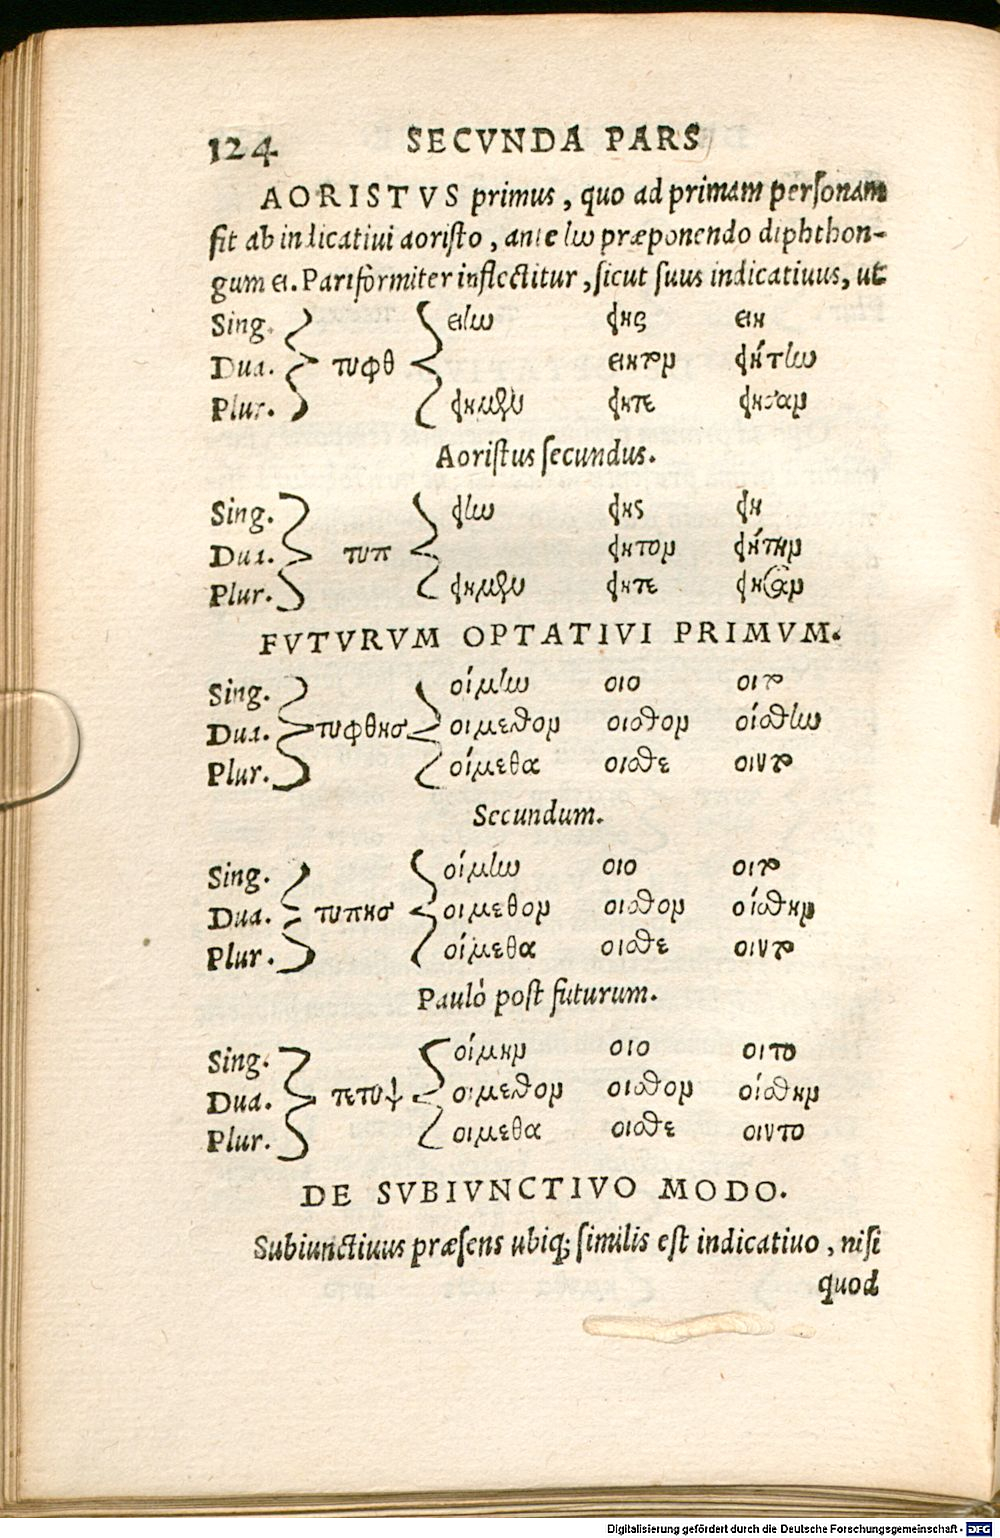 124 SECVNDA PARS
AORISTVS primus, quo ad primam personam
fit ab indicatiui aoristo, ante ην præponendo diphthon-
gum ει. Pariformiter inflectitur, sicut suus indicatiuus, ut
Sing. ειην ειης ειη
Dua. τυφθ ειητον ειήτην
Plur. ειημεν ειητε ειησαν
Aoristus secundus.
Sing. ειην ειης ειη
Dua. τυπ ειητον ειήτην
Plur. ειημεν ειητε ειησαν
FVTVRVM OPTATIVI PRIMVM.
Sing. οίμην οιο οιτο
Dua. τυφθησ οιμεθον οισθον οίσθην
Plur. οίμεθα οισθε οιντο
Secundum.
Sing. οίμην οιο οιτο
Dua. τυπησ οιμεθον οισθον οίσθην
Plur. οίμεθα οισθε οιντο
Paulò post futurum.
Sing. οίμην οιο οιτο
Dua. τετυψ οιμεθον οισθον οίσθην
Plur. οιμεθα οισθε οιντο
DE SVBIVNCTIVO MODO.
Subiunctiuus præsens ubiq; similis est indicatiuo, nisi
quod
Digitalisierung gefördert durch die Deutsche Forschungsgemeinschaft - DFG